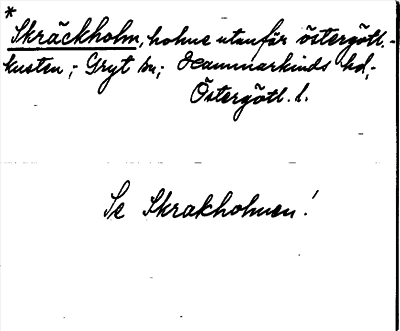 *
Skräckholm, holme utanför östergötl.-
kusten,; Gryt sn; Hammarkinds hd,;
Östergötl. l.
Se Skrakholmen!